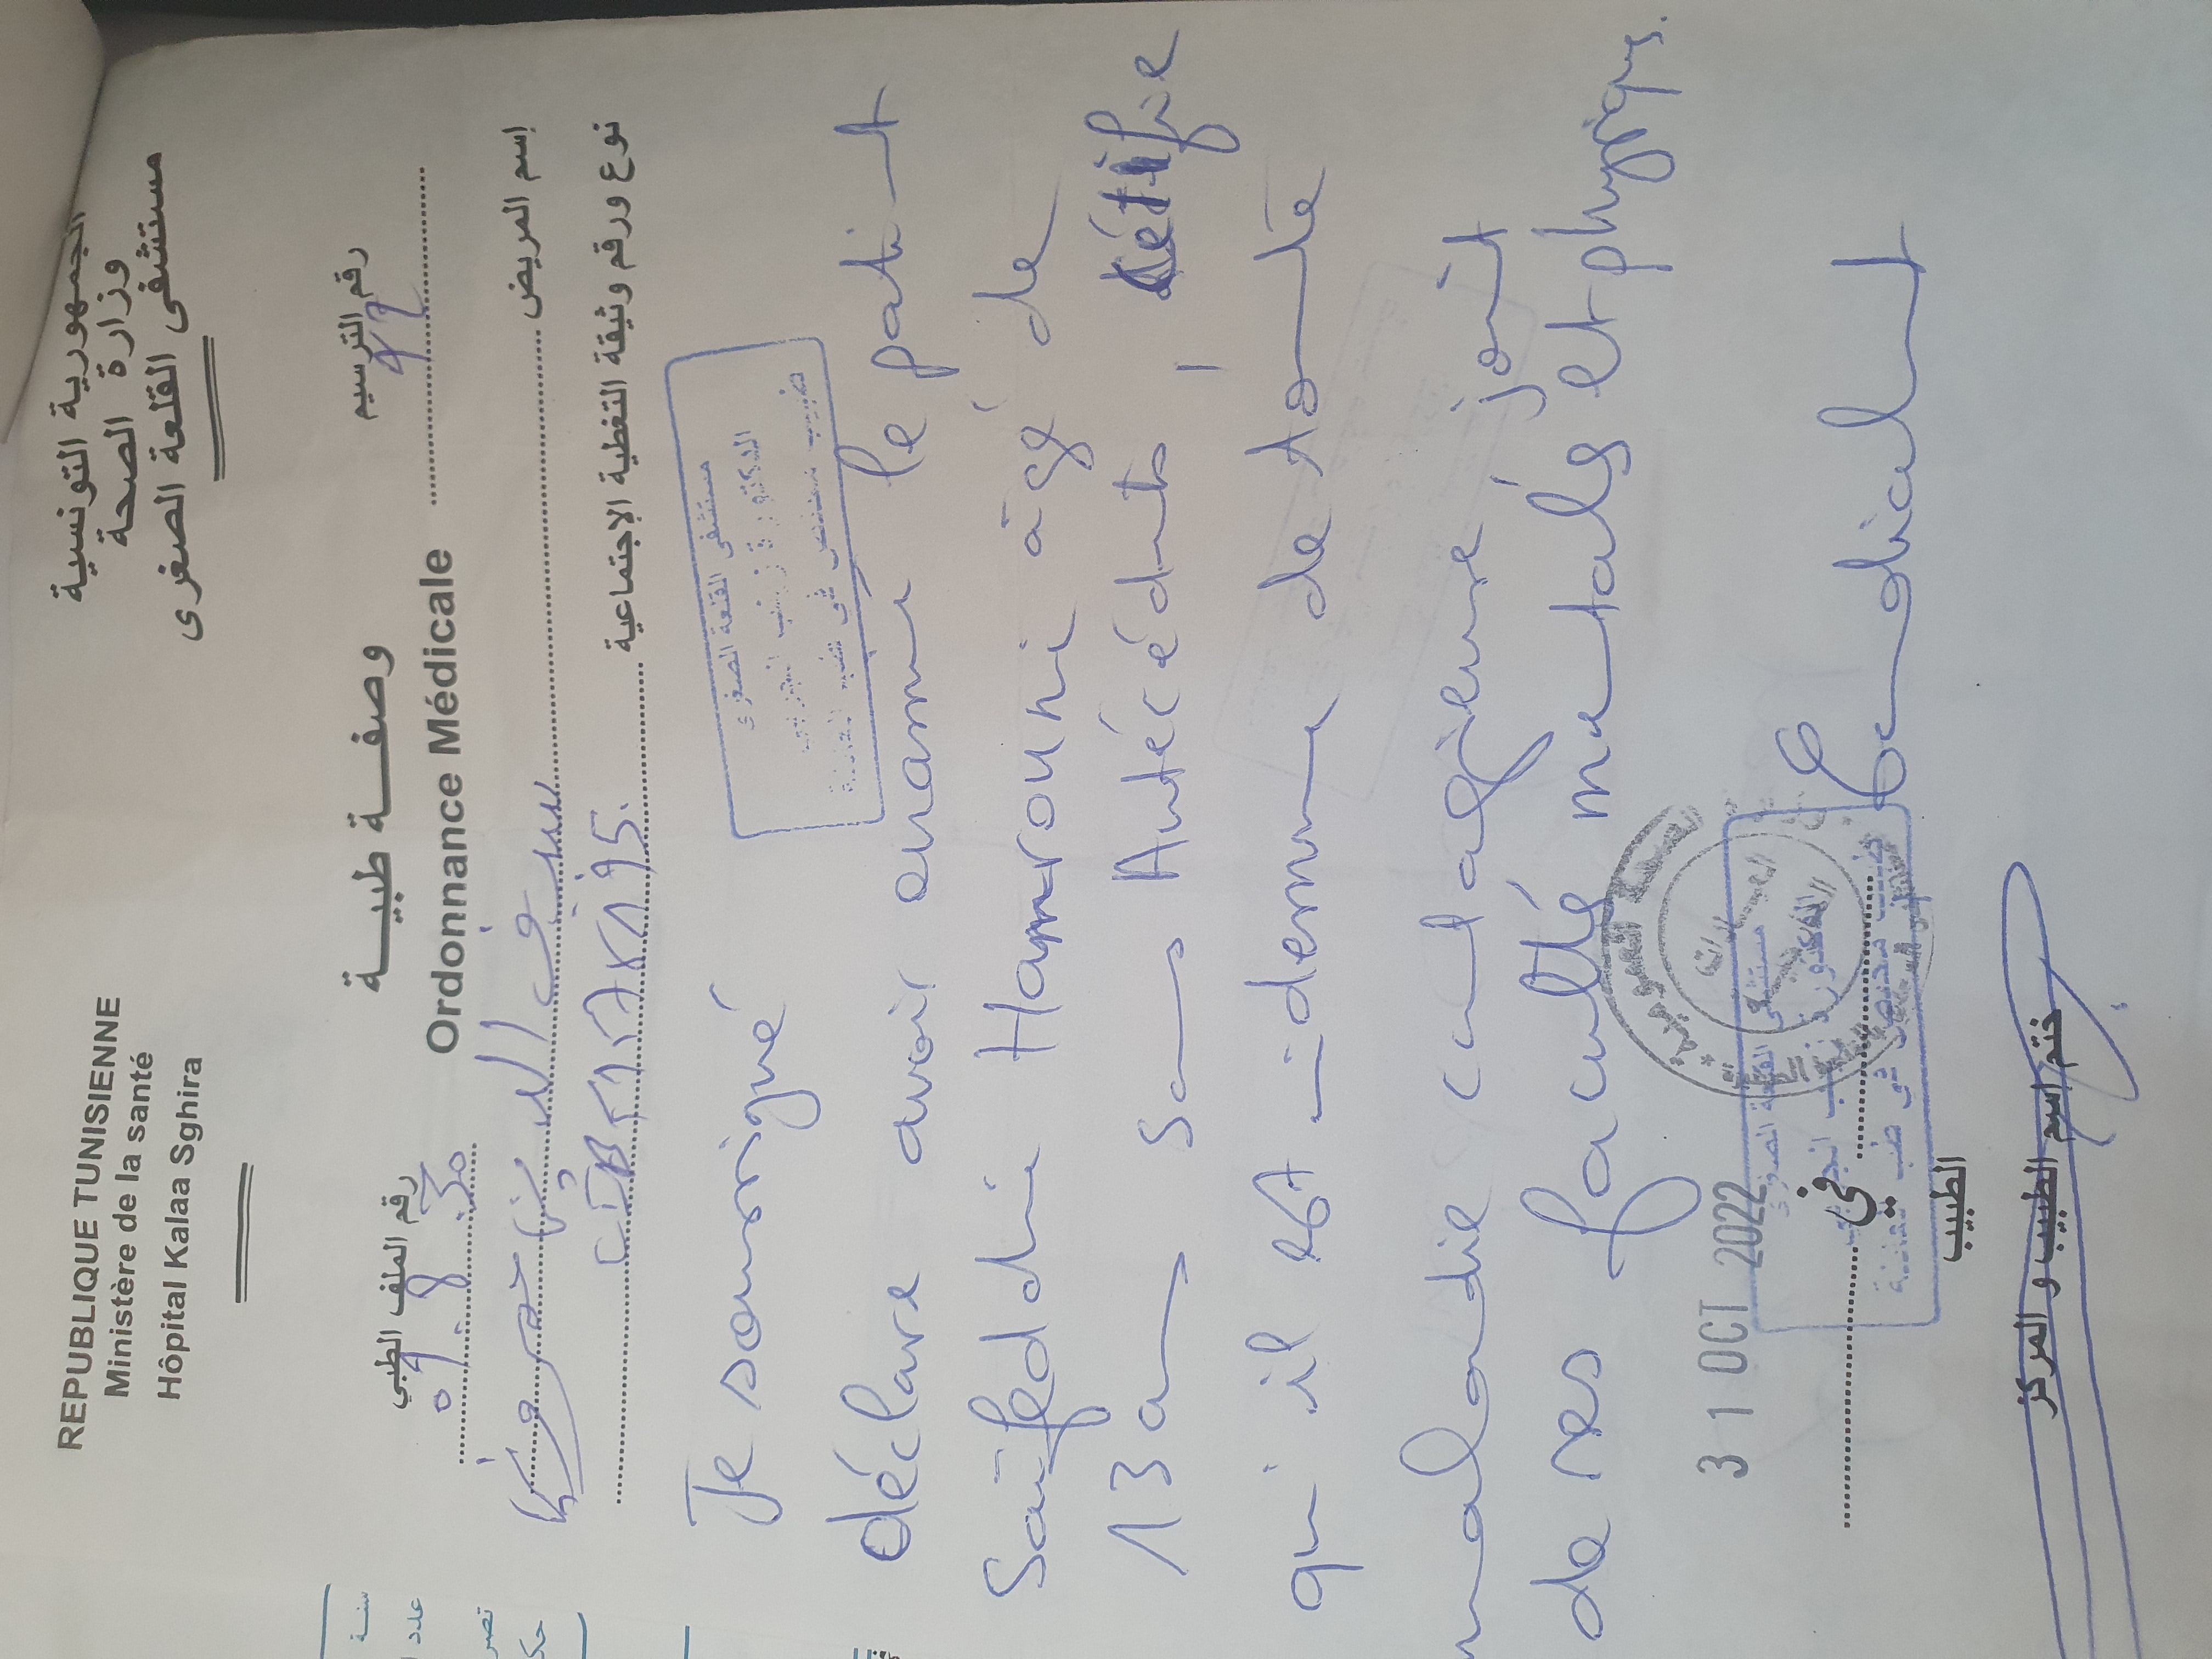 REPUBLIQUE TUNISIENNE
Ministère de la santé
Hôpital Kalaa Sghira
الجمهورية التونسية
وزارة الصحة
مستشفى القلعة الصغرى
وصفة طبية
Ordonnance Médicale
رقم الملف الطبي
رقم الترسيم
إسم المريض سيف الدين حمروني
نوع ورقم وثيقة التغطية الإجتماعية
مستشفى القلعة الصغرى
Je soussigné
déclare avoir examiné le patient
Saifeddin Hamrouni âgé de
13 ans sans Antécédents,
qu'il est indemne de toute
maladie contagieuse jouit
de ses facultés mentales et physiques.
31 OCT 2022
في
الطبيب
ختم إسم الطبيب و المركز
سنة
عدد